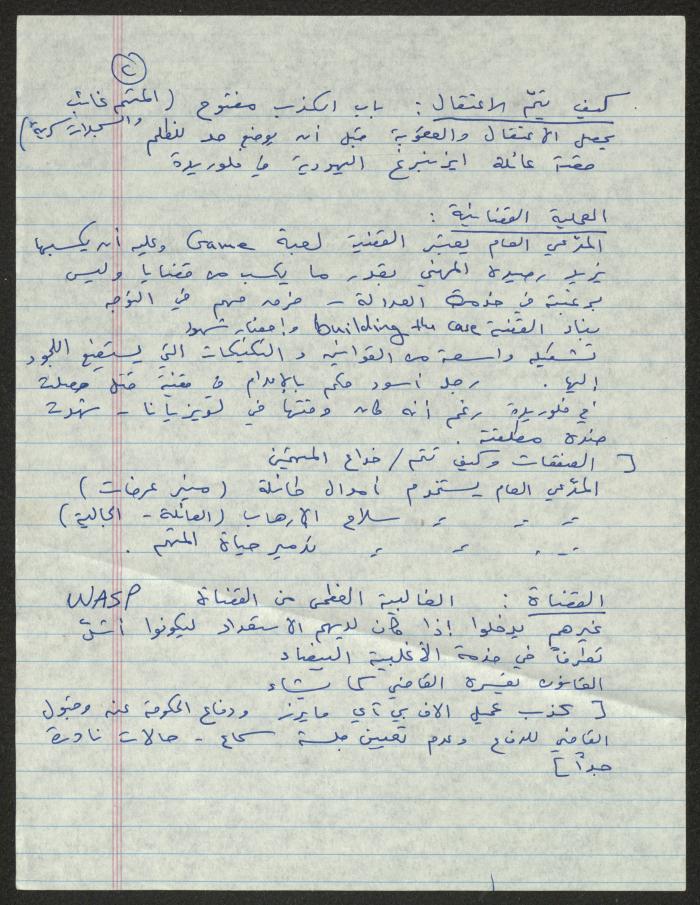 ٢
كيف يتمّ الاعتقال : باب الكذب مفتوح (المتهم غائب
والسجلات سرية)
يحصل الاعتقال والعقوبة قبل أن يوضع حد للظلم
قصة عائلة ايزنبرغ اليهودية في فلوريدة
العملية القضائية :
المدّعي العام يعتبر القضية لعبة Game وعليه أن يكسبها
يزيد رصيده المهني بقدر ما يكسب من قضايا وليس
برغبته في خدمة العدالة - فرق مهم في التوجه
بناء القضية building the case وإحضار شهود
تشكيلة واسعة من القوانين والتكتيكات التي يستطيع اللجوء
إليها . رجل أسود حكم بالإعدام في قضية قتل حصلت
في فلوريدة رغم أنه كان وقتها في لويزيانا - شهدت
ضده مطلقته .
[ الصفقات وكيف تتم / خداع المتهمين
المدّعي العام يستخدم أموال طائلة (ميني عرضات)
" " " سلاح الإرهاب (العائلة - الجالية)
" " " تدمير حياة المتهم .
القضاة : الغالبية العظمى من القضاة WASP
غيرهم يدخلوا إذا كان لديهم الاستعداد ليكونوا أشدّ
تطرفاً في خدمة الأغلبية البيضاء
القانون يفسره القاضي كما يشاء
[ كذب عميل الاف بي آي مايرز ودفاع الحكومة عنه وقبول
القاضي للدفاع وعدم تعيين جلسة سماع - حالات نادرة
جداً ]